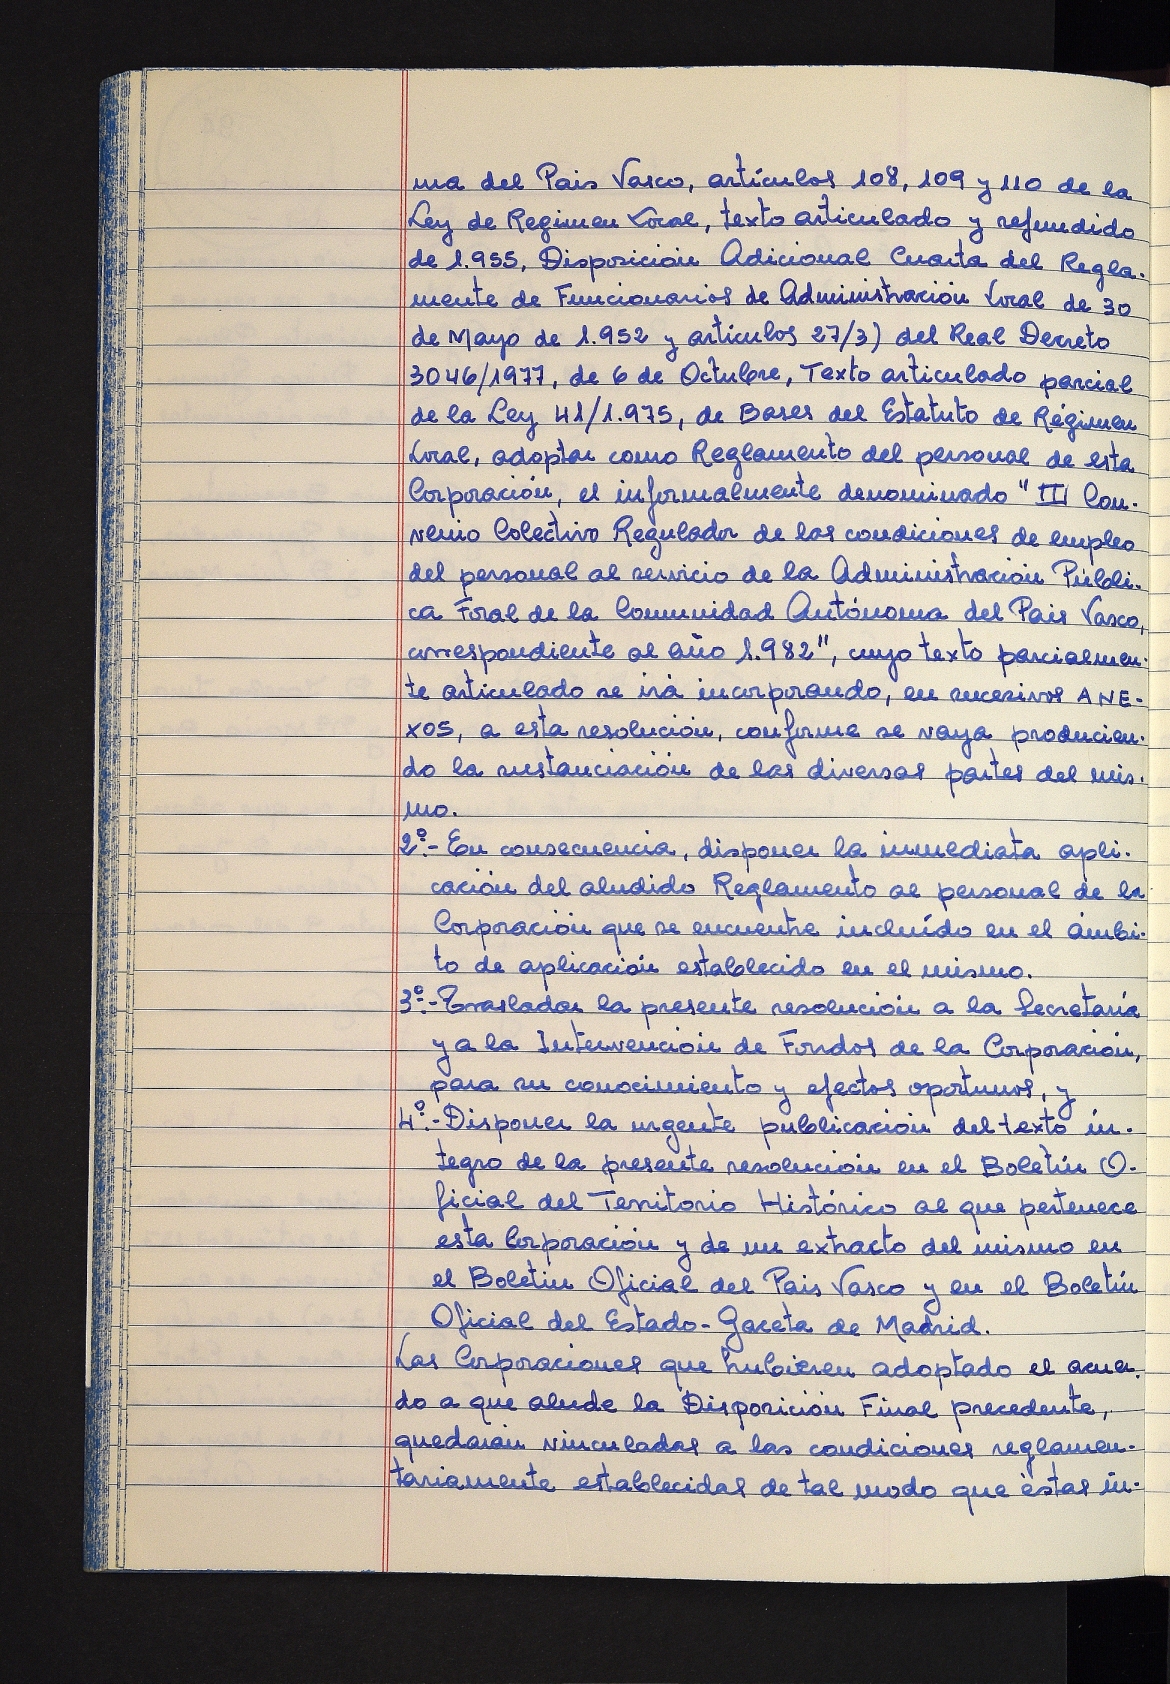 ma del Pais Vasco, artículos 108, 109 y 110 de la
Ley de Regimen Local, texto articulado y refundido
de 1.955, Disposición Adicional Cuarta del Regla-
mente de Funcionarios de Administración Local de 30
de Mayo de 1.952 y artículos 27/3) del Real Decreto
3046/1977, de 6 de Octubre, Texto articulado parcial
de la Ley 41/1.975, de Bases del Estatuto de Régimen
Local, adoptar como Reglamento del personal de esta
Corporación, el informalmente denominado "III Con-
venio Colectivo Regulador de las condiciones de empleo
del personal al servicio de la Administración Públi-
ca Foral de la Comunidad Autónoma del Pais Vasco,
correspondiente al año 1.982", cuyo texto parcialmen-
te articulado se irá incorporando, en sucesivos ANE-
XOS, a esta resolución, conforme se vaya producien-
do la sustanciación de las diversas partes del mis-
mo.
2º.- En consecuencia, disponer la inmediata apli-
cación del aludido Reglamento al personal de la
Corporación que se encuentre incluído en el ámbi-
to de aplicación establecido en el mismo.
3º.- Trasladar la presente resolución a la Secretaría
y a la Intervención de Fondos de la Corporación,
para su conocimiento y efectos oportunos, y
4º.- Disponer la urgente publicación del texto ín-
tegro de la presente resolución en el Boletín O-
ficial del Territorio Histórico al que pertenece
esta Corporación y de un extracto del mismo en
el Boletín Oficial del Pais Vasco y en el Boletín
Oficial del Estado-Gaceta de Madrid.
Las Corporaciones que hubieren adoptado el acuer-
do a que alude la Disposición Final precedente,
quedarán vinculadas a las condiciones reglamen-
tariamente establecidas de tal modo que éstas in-